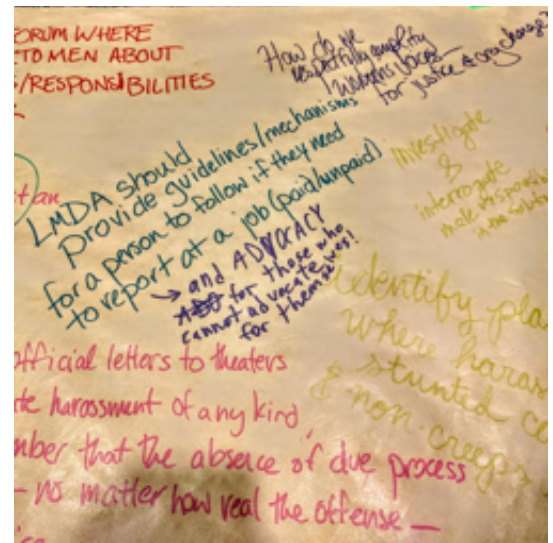 ORUM WHERE
TO MEN ABOUT
/RESPONSIBILITIES
How do we
respectfully amplify
women's voices
for justice & any change?
LMDA should
provide guidelines/mechanisms
for a person to follow if they need
to report at a job (paid/unpaid)
→ and ADVOCACY
for those who
cannot advocate
for themselves!
Investigate
&
interrogate
male responsibility
in the solution
identify pla
where haras
stunted
& non-creeps
official letters to theaters
te harassment of any kind,
mber that the absence of due process
— no matter how real the offense —